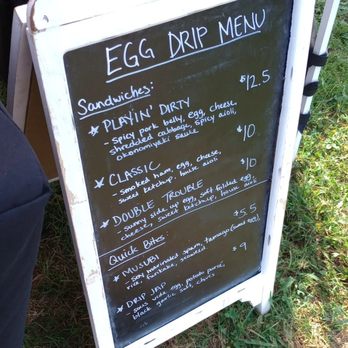 EGG DRIP MENU
Sandwiches:
* PLAYIN' DIRTY $12.5
- spicy pork belly, egg, cheese,
shredded cabbage, spicy aioli,
okonomiyaki sauce
* CLASSIC $10
- smoked ham, egg, cheese,
sweet ketchup, house aioli
* DOUBLE TROUBLE $10
- sunny side up egg, soft folded egg,
cheese, sweet ketchup, house aioli
Quick Bites:
* MUSUBI $5.5
- soy marinated spam, tamago
rice, furikake, seaweed
* DRIP JAP $9
- sous vide egg, potato puree,
black garlic, salt, chives